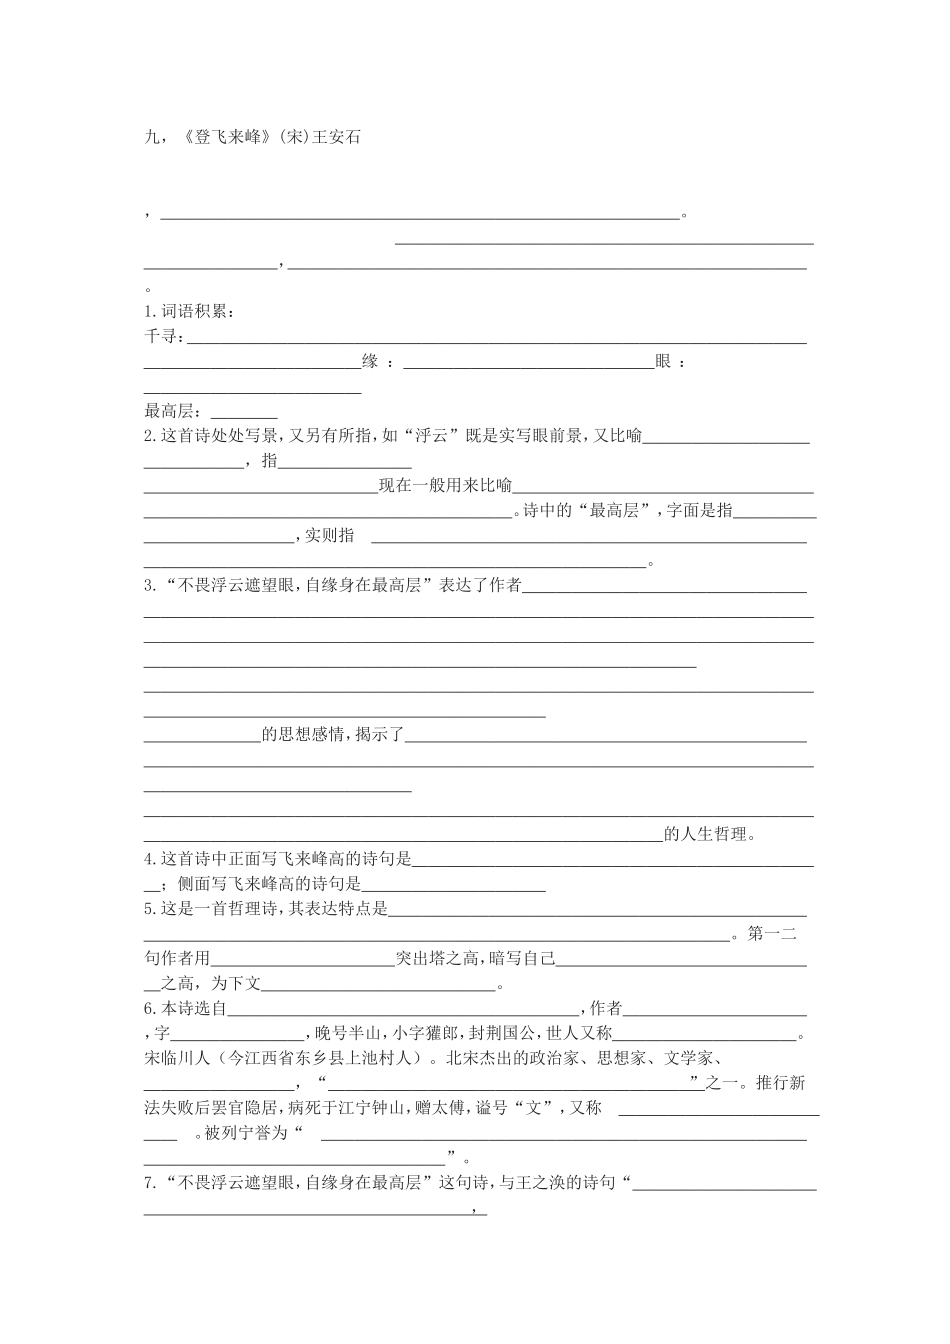 九，《登飞来峰》(宋)王安石
，______________________________________________________________。
__________________________________________________
________________,______________________________________________________________
。
1.词语积累：
千寻：__________________________________________________________________________
__________________________缘 ：______________________________眼 ：
__________________________
最高层：________
2.这首诗处处写景,又另有所指,如“浮云”既是实写眼前景,又比喻____________________
____________，指________________
____________________________现在一般用来比喻____________________________________
____________________________________________。诗中的“最高层”,字面是指__________
__________________,实则指 ____________________________________________________
____________________________________________________________。
3.“不畏浮云遮望眼,自缘身在最高层”表达了作者__________________________________
________________________________________________________________________________
________________________________________________________________________________
__________________________________________________________________
________________________________________________________________________________
________________________________________________
______________的思想感情,揭示了________________________________________________
________________________________________________________________________________
________________________________
________________________________________________________________________________
______________________________________________________________的人生哲理。
4.这首诗中正面写飞来峰高的诗句是________________________________________________
__；侧面写飞来峰高的诗句是______________________
5.这是一首哲理诗,其表达特点是__________________________________________________
______________________________________________________________________。第一二
句作者用______________________突出塔之高,暗写自己______________________________
__之高，为下文____________________________。
6.本诗选自__________________________________________,作者______________________
,字________________,晚号半山,小字獾郎,封荆国公,世人又称______________________。
宋临川人（今江西省东乡县上池村人）。北宋杰出的政治家、思想家、文学家、
__________________，“___________________________________________”之一。推行新
法失败后罢官隐居,病死于江宁钟山,赠太傅,谥号“文”,又称 ________________________
____ 。被列宁誉为“ __________________________________________________________
____________________________________”。
7.“不畏浮云遮望眼,自缘身在最高层”这句诗,与王之涣的诗句“______________________
_______________________________________，